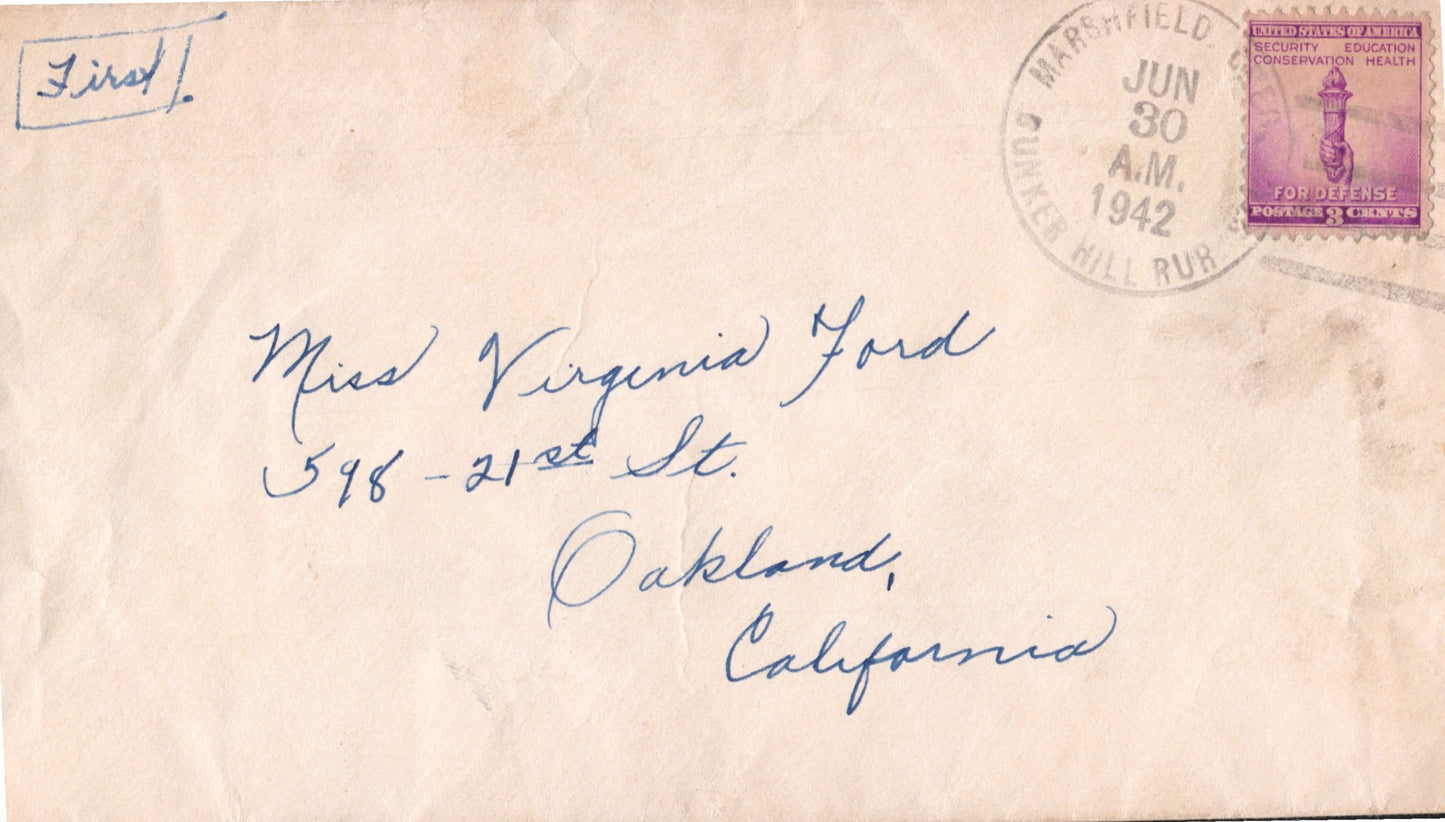 First!
MARSHFIELD, OREG.
BUNKER HILL RUR.
JUN
30
A.M.
1942
UNITED STATES OF AMERICA
SECURITY EDUCATION
CONSERVATION HEALTH
FOR DEFENSE
POSTAGE 3 CENTS
Miss Virginia Ford
598 - 21st St.
Oakland,
California